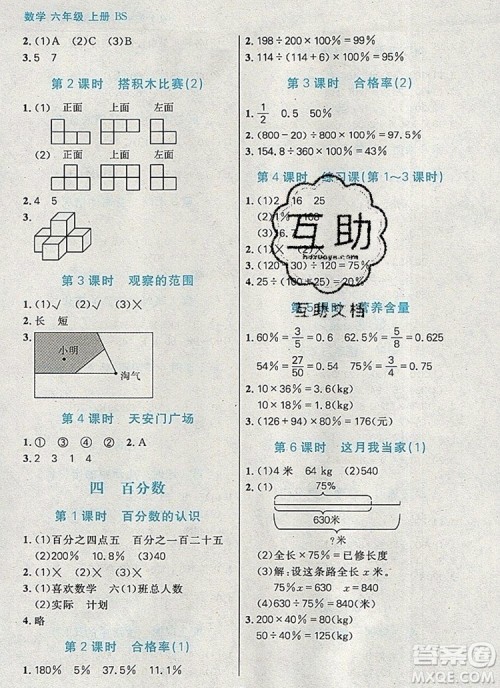 数学 六年级 上册 BS
2.(1)A (2)C (3)A
3.5 7
第2课时 搭积木比赛(2)
1.(1) 正面 上面 左面
(2) 正面 上面 左面
2.4 5
3.
第3课时 观察的范围
1.(1)√ (2)√ (3)×
2.长 短
3.
小明
淘气
第4课时 天安门广场
1.① ③ ④ ② 2.A
3.
四 百分数
第1课时 百分数的认识
1.(1)百分之四点五 百分之一百二十五
(2)220% 18.8% 0.5%
2.(1)× (2)× (3)×
3.(1)喜欢数学 六(1)班总人数
(2)实际 计划
4.略
第2课时 合格率(1)
1.180% 5% 37.5% 11.1%
2.198÷200×100%=99%
3.114÷(114+6)×100%=95%
第3课时 合格率(2)
1. 1/2 0.5 50%
2.(800-20)÷800×100%=97.5%
3.154.8÷360×100%=43%
第4课时 练习课(第1~3课时)
1.(1)2 16 25
(2)1%
2.(1)× (2)×
3.(120-30)÷120=75%
4.25÷(100+25)×100%=20%
第5课时 营养含量
1.60%=3/5=0.6 62.5%=5/8=0.625
54%=27/50=0.54 75%=3/4=0.75
2.10×36%=3.6(kg)
10×18%=1.8(kg)
3.(126+94)×80%=176(元)
第6课时 这月我当家(1)
1.(1)4米 64 kg (2)540
2.(1) 75%
630米
?米
(2)全长×75%=已修长度
75%x=630 x=840
3.200×40%=80(米)
50÷40%=125(米)
互助
hdzuoye.com
互助文档
作业帮答案
MXQE.COM